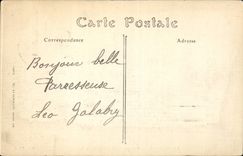 Carte Postale
Correspondance
Adresse
Bonjour belle
Parresseuse
Leo Galabry